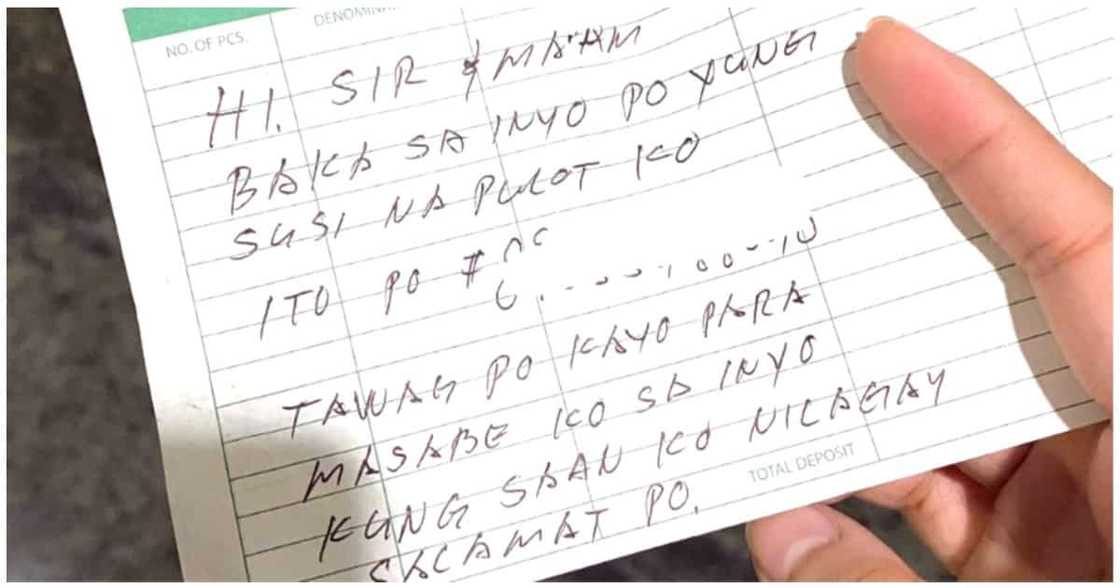 NO. OF PCS.
HI. SIR & MA'AM
BAKA SA INYO PO YUNG
SUSI NA PULOT KO
ITO PO #
TAWAG PO KAYO PARA
MASABE KO SA INYO
KUNG SAAN KO NILAGAY
TOTAL DEPOSIT
SALAMAT PO.